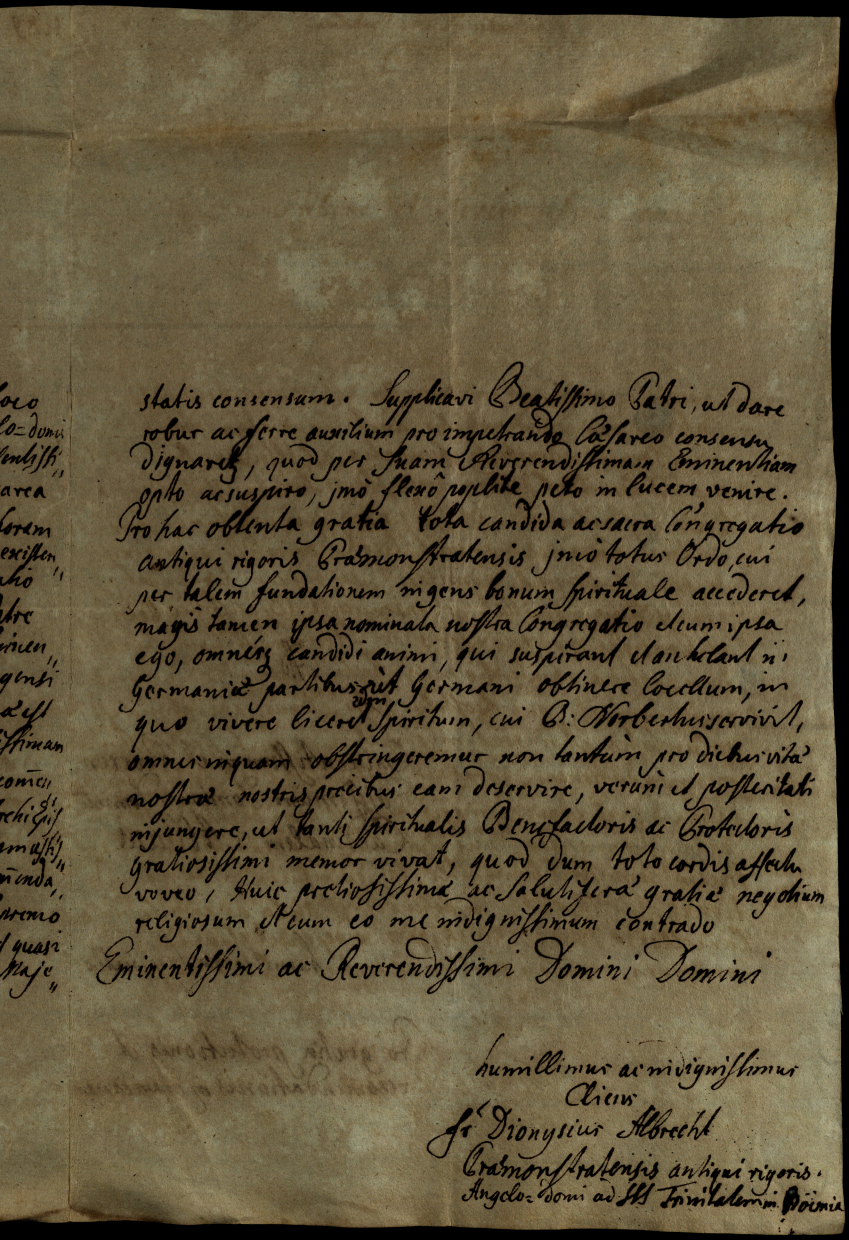 statis consensum. Supplicavi Beatissimo Patri, ut dare
robur ac ferre auxilium pro impetrando Cæsareo consensu
dignaretz, quod per suam Reverendissimam Eminentiam
opto ac suspiro, jmô flexô poplite peto in lucem venire.
Pro hac obtenta gratia tota candida ac sacra Congregatio
antiqui rigoris Præmonstratensis jmò totus Ordo, cui
per talem fundationem ingens bonum spirituale accederet,
magis tamen ipsa nominata nostra Congregatio et cum ipsa
ego, omnésq candidi animi, qui suspirant et anhelant in
Germaniæ partibus ut Germani obtinere locellum, in
quo vivere liceret eum spiritum, cui B: Norbertus servivit,
omnes inquam obstringeremur non tantùm pro diebus vitæ
nostræ nostris precibus eam deservire, verùm et posteritati
injungere, ut tanti spiritualis Benefactoris ac Protectoris
gratiosissimi memor vivat, quod dum toto cordis affectu
voveo, huic pretiosissimæ ac salutiferæ gratiæ negotium
religiosum et cum eo me indignissimum contrado
Eminentissimi ac Reverendissimi Domini Domini
humillimus ac indignissimus
Cliens
fr Dionysius Albrecht
Præmonstratensis antiqui rigoris.
Angelo=domi ad SSS Trinitatem in Boëmia
loco
lo=domi
entissi„
area
existen„
atre
gensi
æ est
issimam
menda„
quasi
Maje„